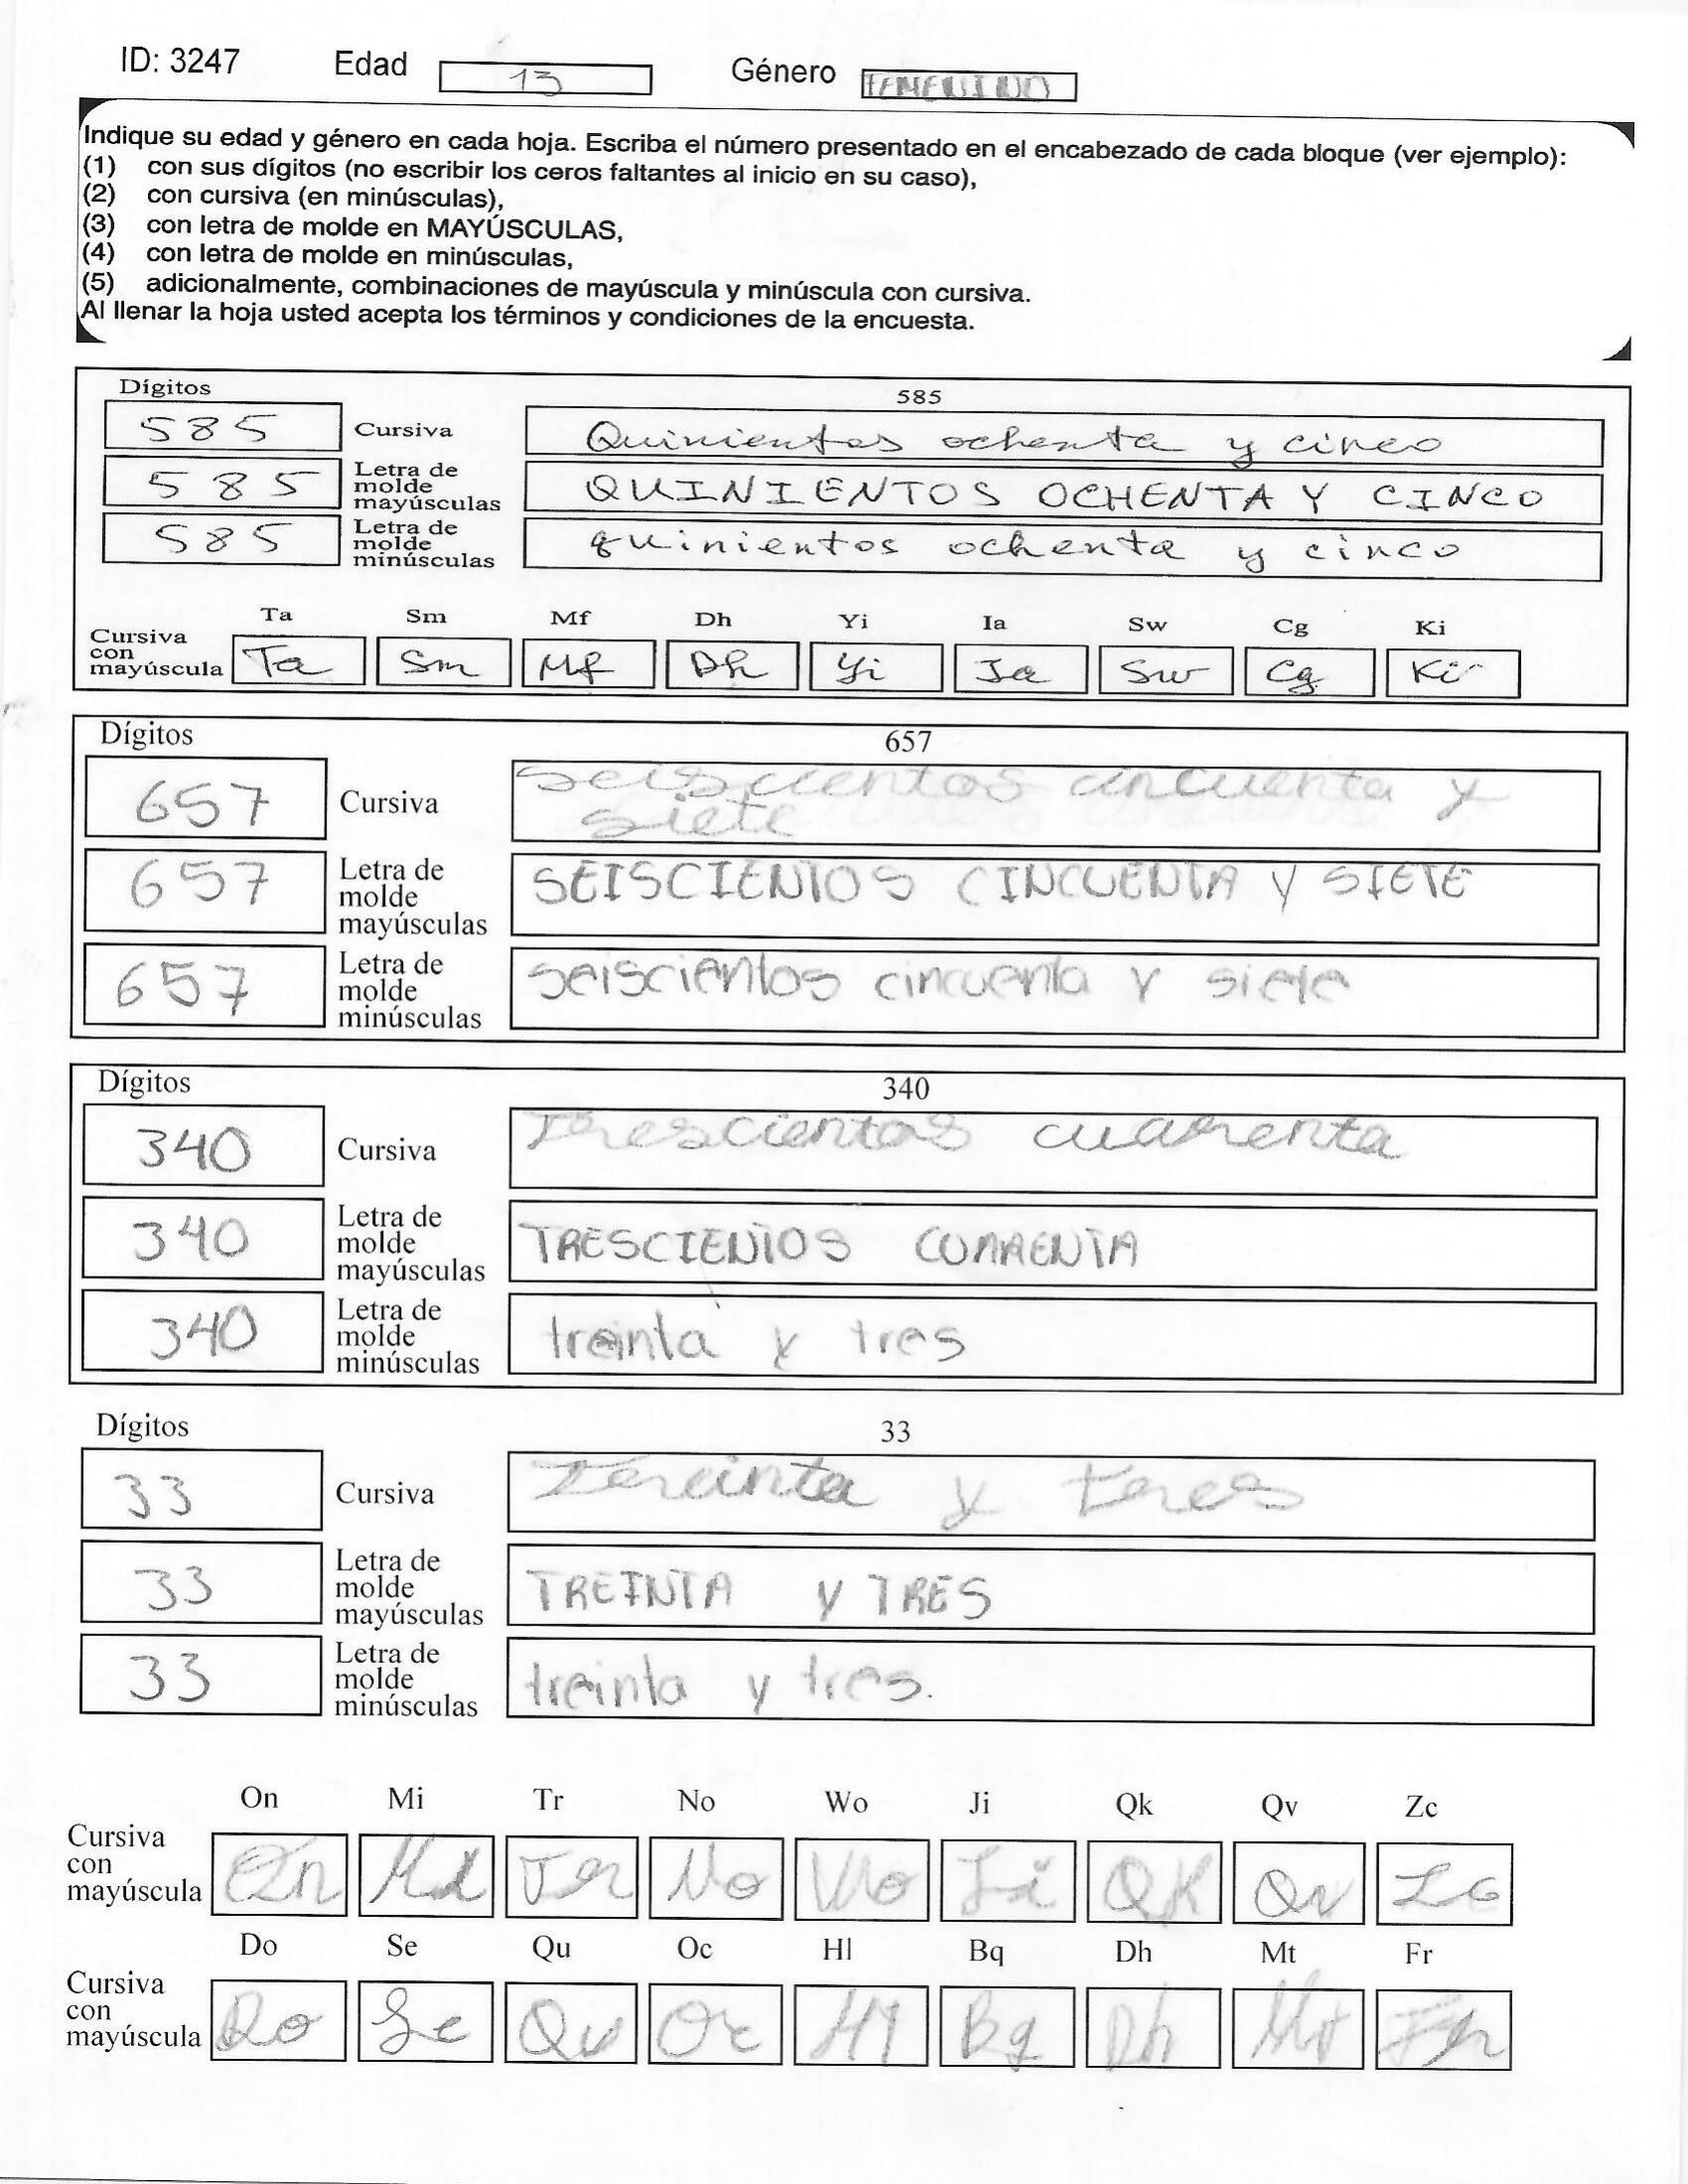 ID: 3247 Edad 13 Género FEMENINO
Indique su edad y género en cada hoja. Escriba el número presentado en el encabezado de cada bloque (ver ejemplo):
(1) con sus dígitos (no escribir los ceros faltantes al inicio en su caso),
(2) con cursiva (en minúsculas),
(3) con letra de molde en MAYÚSCULAS,
(4) con letra de molde en minúsculas,
(5) adicionalmente, combinaciones de mayúscula y minúscula con cursiva.
Al llenar la hoja usted acepta los términos y condiciones de la encuesta.
Dígitos 585
585 Cursiva Quinientos ochenta y cinco
585 Letra de molde mayúsculas QUINIENTOS OCHENTA Y CINCO
585 Letra de molde minúsculas quinientos ochenta y cinco
Ta Sm Mf Dh Yi Ia Sw Cg Ki
Cursiva con mayúscula Ta Sm Mf Dh Yi Ia Sw Cg Ki
Dígitos 657
657 Cursiva seiscientos cincuenta y
siete
657 Letra de molde mayúsculas SEISCIENTOS CINCUENTA Y SIETE
657 Letra de molde minúsculas seiscientos cincuenta y siete
Dígitos 340
340 Cursiva Trescientos cuarenta
340 Letra de molde mayúsculas TRESCIENTOS CUARENTA
340 Letra de molde minúsculas treinta y tres
Dígitos 33
33 Cursiva Treinta y tres
33 Letra de molde mayúsculas TREINTA Y TRES
33 Letra de molde minúsculas treinta y tres.
On Mi Tr No Wo Ji Qk Qv Zc
Cursiva con mayúscula On Mi Tr No Wo Ji Qk Qv Zc
Do Se Qu Oc Hl Bq Dh Mt Fr
Cursiva con mayúscula Do Se Qu Oc Hl Bq Dh Mt Fr